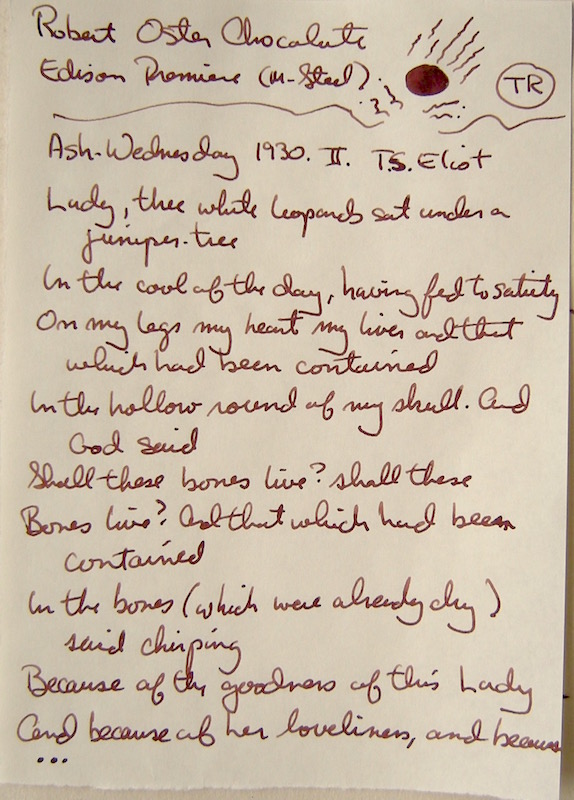 Robert Oster Chocolate
Edison Premiere (M-Steel)
TR
Ash-Wednesday 1930. II. T.S. Eliot
Lady, three white leopards sat under a
juniper-tree
In the cool of the day, having fed to satiety
On my legs my heart my liver and that
which had been contained
In the hollow round of my skull. And
God said
Shall these bones live? shall these
Bones live? And that which had been
contained
In the bones (which were already dry)
said chirping
Because of the goodness of this Lady
And because of her loveliness, and because
...